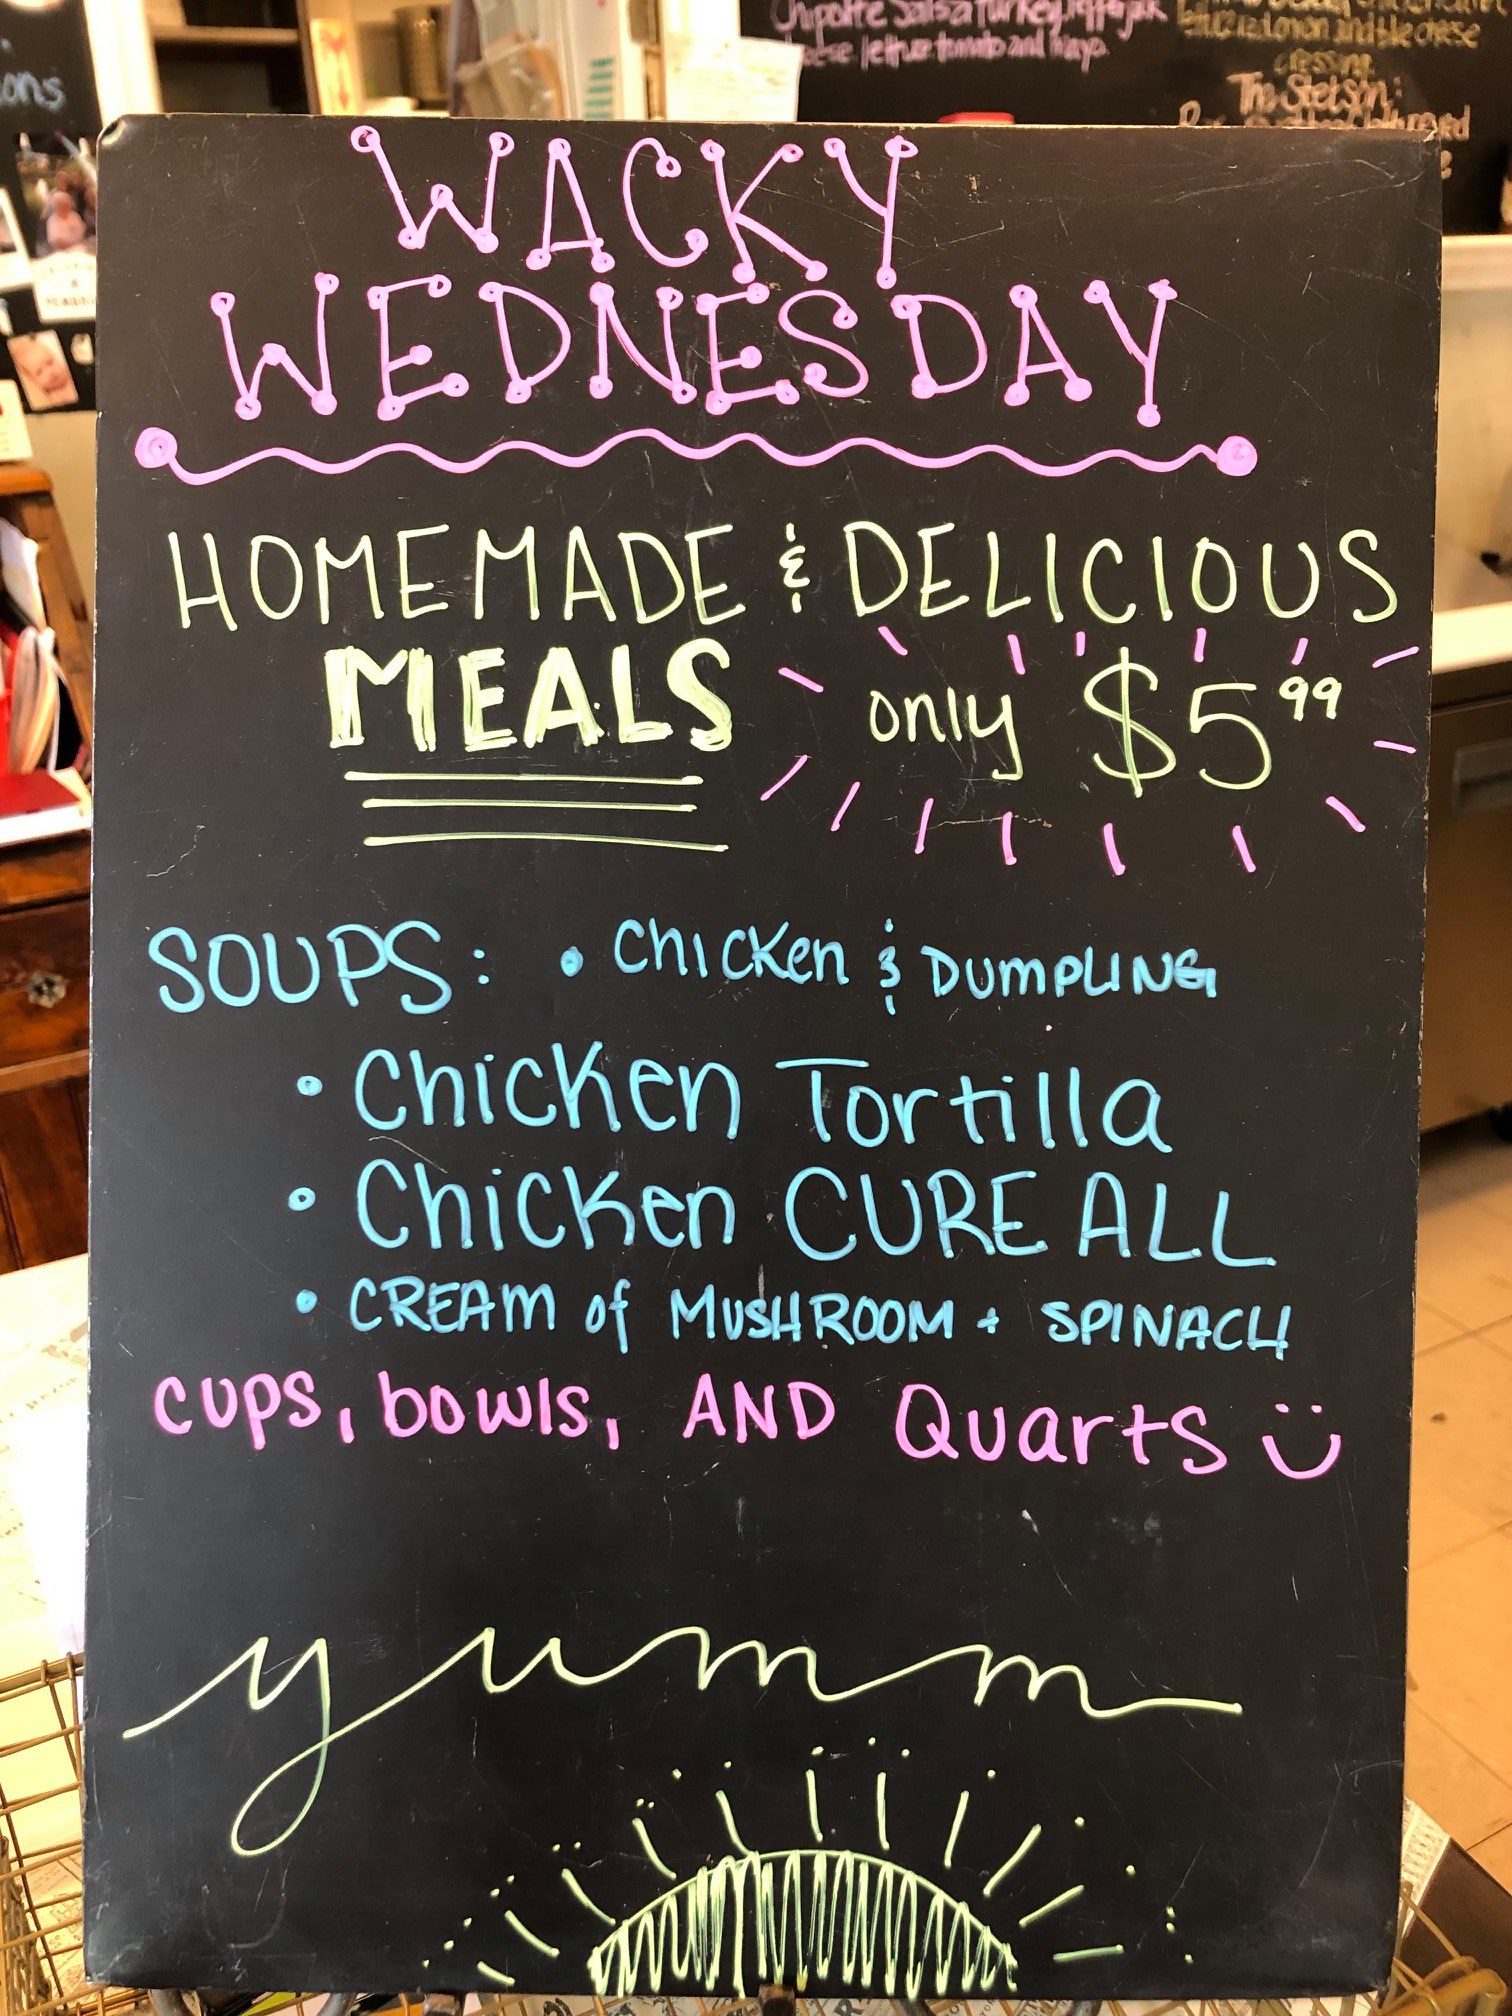 ons
Chipotle Salsa turkey,
cheese lettuce tomato and mayo.
dressing
The Stetson:
WACKY
WEDNESDAY
HOMEMADE & DELICIOUS
MEALS only $5.99
SOUPS: • Chicken & DUMPLING
• Chicken Tortilla
• Chicken CURE ALL
• CREAM of MUSHROOM + SPINACH
CUPS, bowls, AND Quarts Ü
yumm